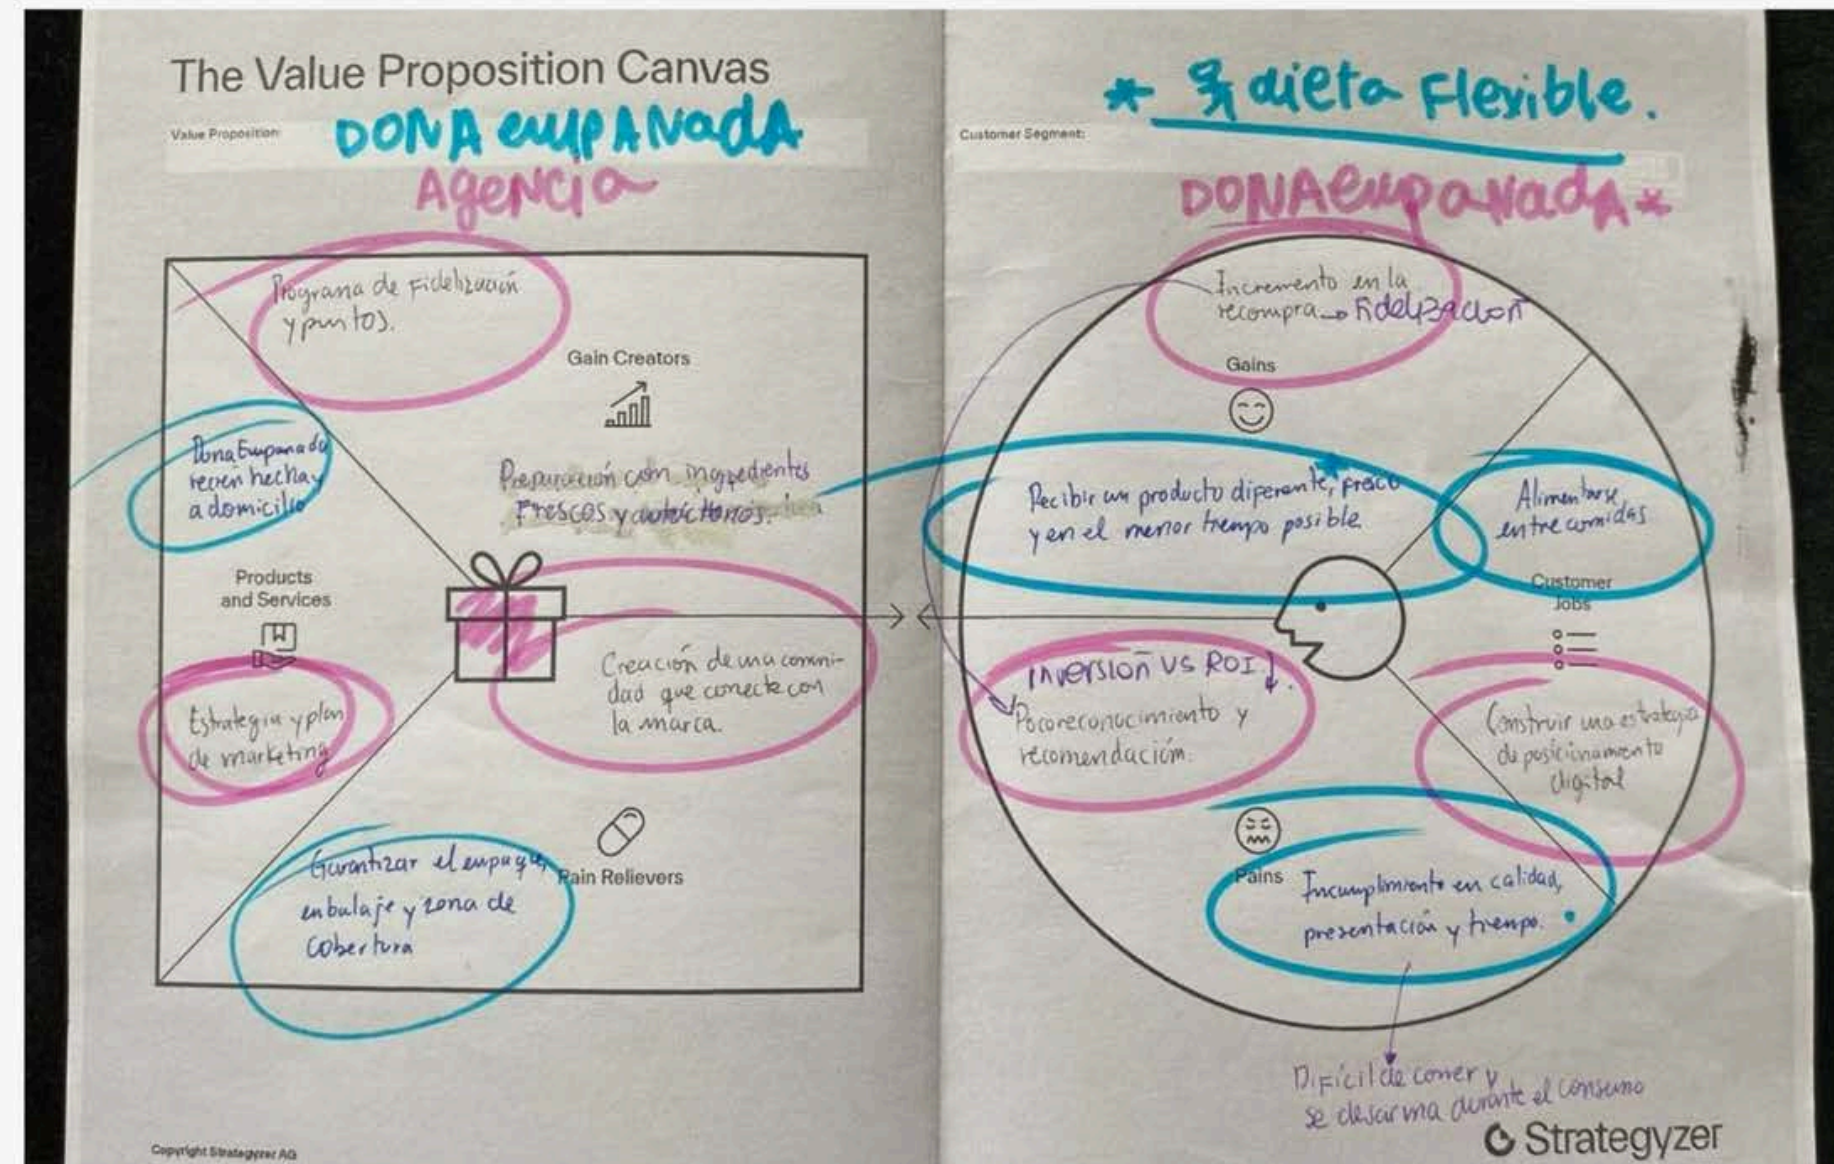 The Value Proposition Canvas
Value Proposition:
DONA empANAdA
AgeNCia
Programa de Fidelización
y puntos.
Gain Creators
Dona Empanada
recién hecha y
a domicilio
Preparación con ingredientes
Frescos y autóctonos.
Products
and Services
Creación de una comuni-
dad que conecte con
la marca.
Estrategia y plan
de marketing
Garantizar el empaque,
enbulaje y zona de
cobertura
Pain Relievers
Copyright Strategyzer AG
* dieta Flexible.
Customer Segment:
DONAempaNadA *
Incremento en la
recompra → Fidelización
Gains
Recibir un producto diferente, fresco
y en el menor tiempo posible
Alimentarse
entre comidas
Customer
Jobs
Inversión VS ROI ↓.
Poco reconocimiento y
recomendación.
Construir una estrategia
de posicionamiento
digital
Pains
Incumplimiento en calidad,
presentación y tiempo.
Difícil de comer y
se desarma durante el consumo
Strategyzer